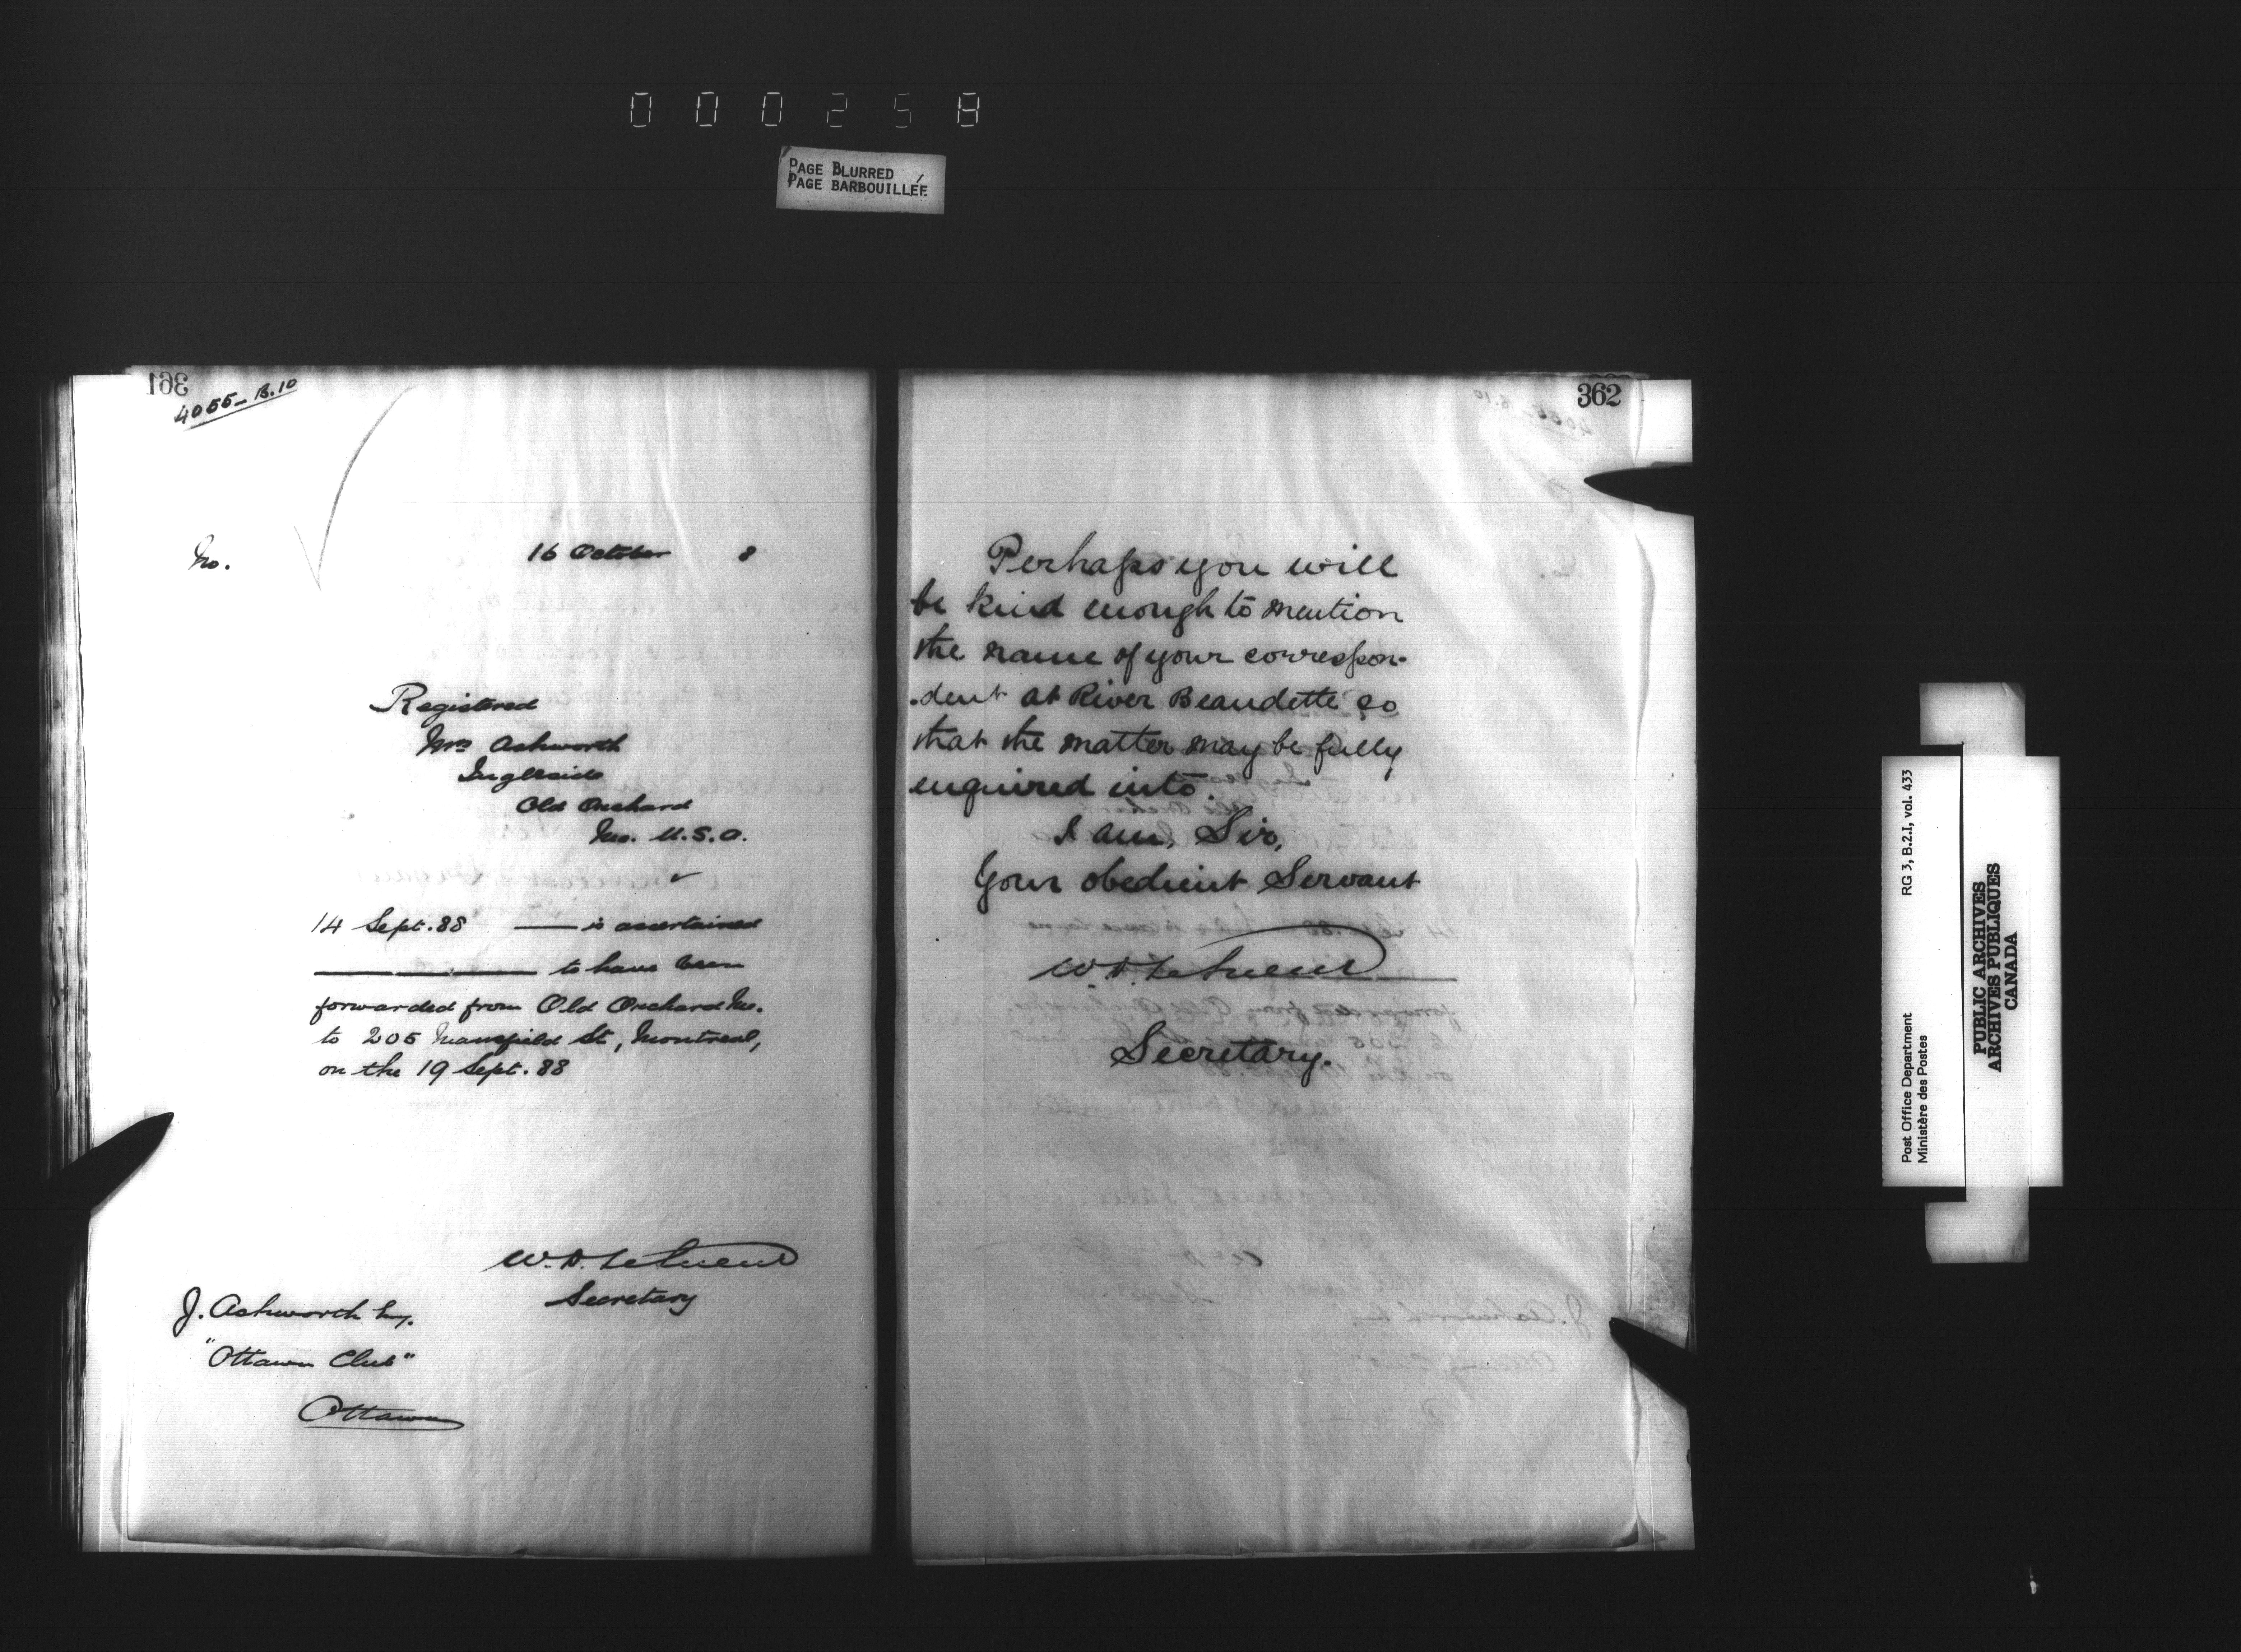 000258
PAGE BLURRED
PAGE BARBOUILLÉE
361
4055-B.10
No. 16 October 8
Registered
Mrs Ashworth
Ingleside
Old Orchard
Me. U.S.A.
14 Sept. 88 — is ascertained
— to have been
forwarded from Old Orchard Me.
to 205 Mansfield St, Montreal,
on the 19 Sept. 88
W.D. LeSueur
Secretary
J. Ashworth Esq.
"Ottawa Club"
Ottawa
362
Perhaps you will
be kind enough to mention
the name of your correspon-
-dent at River Beaudette so
that the matter may be fully
enquired into.
I am, Sir,
Your obedient Servant
W.D. LeSueur
Secretary.
Post Office Department RG 3, B.2.I, vol. 433
Ministère des Postes
PUBLIC ARCHIVES
ARCHIVES PUBLIQUES
CANADA